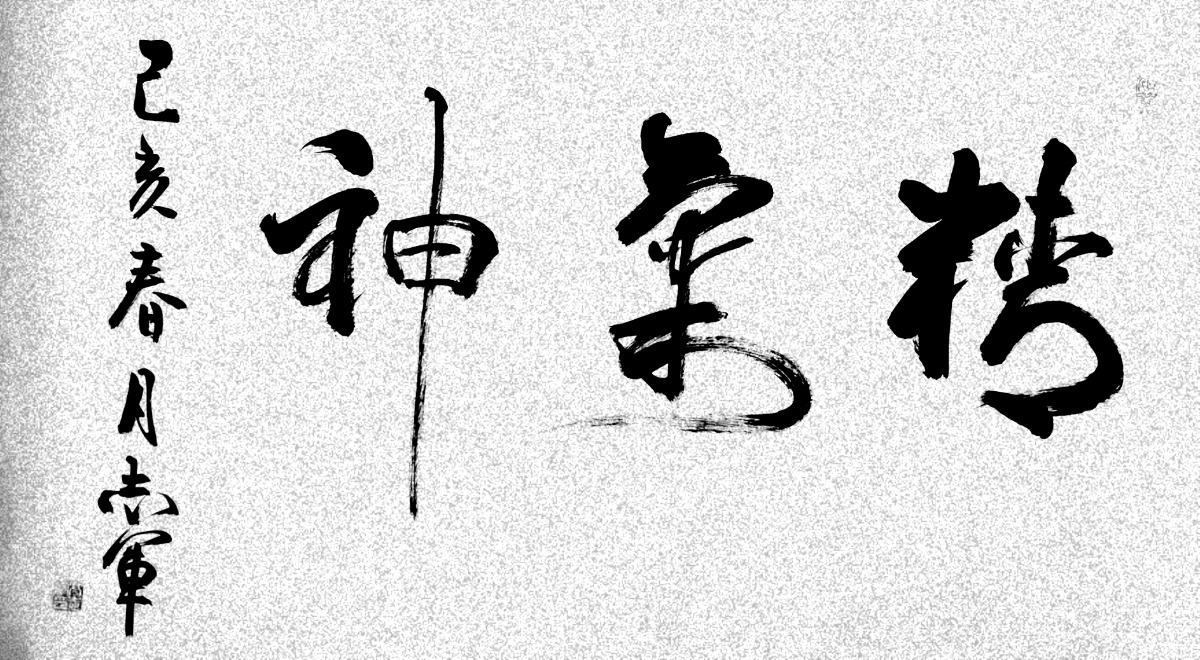 精氣神
己亥春月志軍